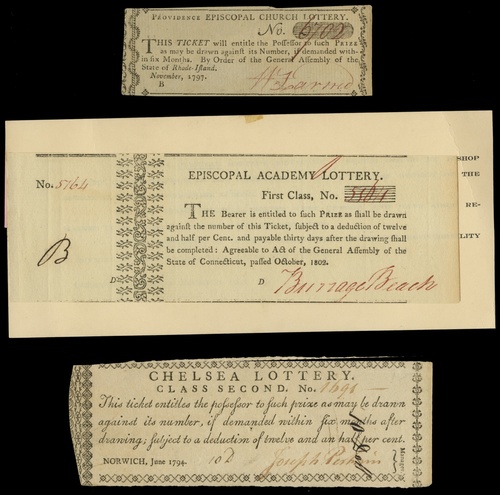 PROVIDENCE EPISCOPAL CHURCH LOTTERY.
No. 6702
THIS TICKET will entitle the Possessor to such PRIZE
as may be drawn against its Number, if demanded with-
in six Months. By Order of the General Assembly of the
State of Rhode-Island.
November, 1797.
B
No. 5164
B
D
EPISCOPAL ACADEMY LOTTERY.
First Class, No. 5164
THE Bearer is entitled to such PRIZE as shall be drawn
against the number of this Ticket, subject to a deduction of twelve
and half per Cent. and payable thirty days after the drawing shall
be completed: Agreeable to Act of the General Assembly of the
State of Connecticut, passed October, 1802.
D Burrage Beach
SHOP
THE
RE-
LITY
CHELSEA LOTTERY.
CLASS SECOND. No. 1691
This ticket entitles the possessor to such prize as may be drawn
against its number, if demanded within six months after
drawing; subject to a deduction of twelve and an half per cent.
NORWICH, June 1794. 10 D Joseph Perkins
Managers